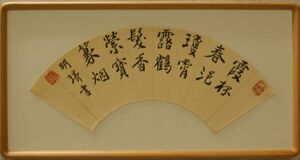 霞杯
春泛
瓊霄
露鶴
髮香
縈寶
篆烟
明瑞書